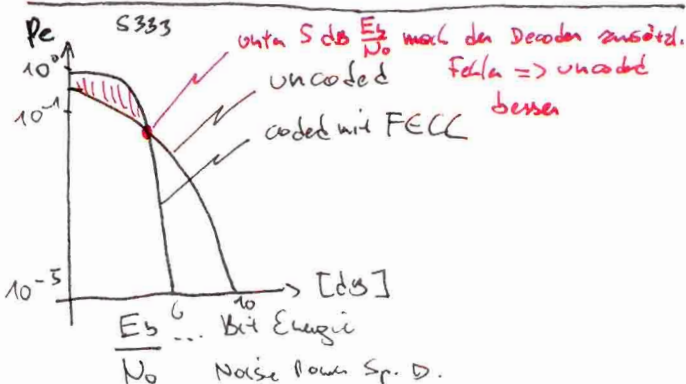 Pe S333
unter 5 dB Eb/N0 mach der Decoder zusätzl.
Fehler => uncoded
besser
10^0
uncoded
10^-1
coded mit FECC
10^-5
6 10 [dB]
Eb/N0 ... Bit Energie
Noise Power Sp. D.